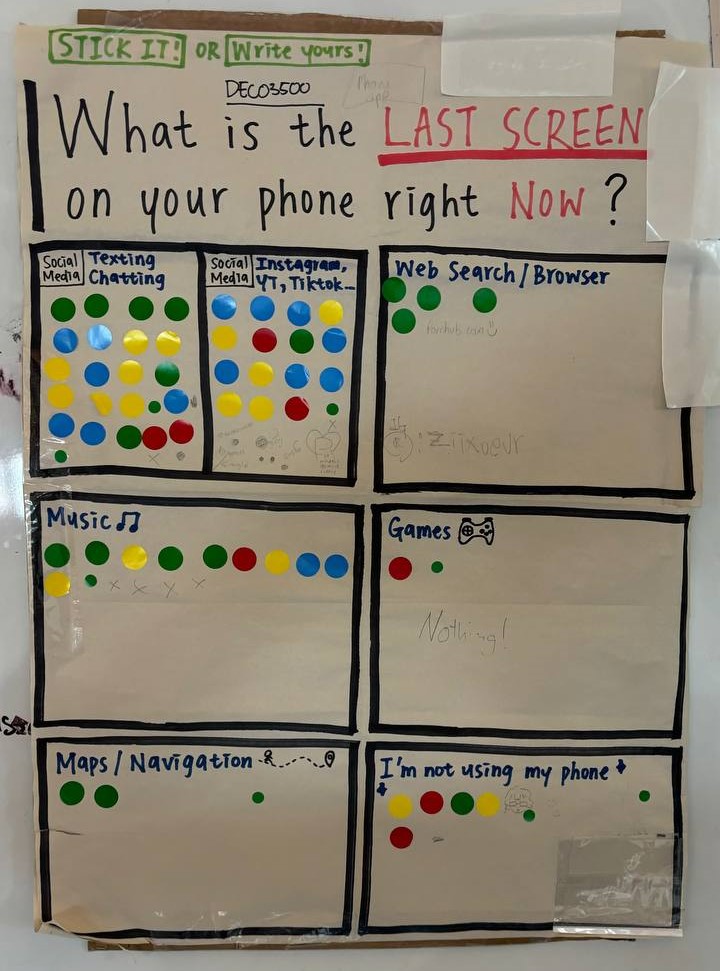 STICK IT! OR Write yours!
DECO3500
Phone
app
What is the LAST SCREEN
on your phone right Now?
Social
Media
Texting
Chatting
Social
Media
Instagram,
YT, Tiktok...
Web Search/Browser
Pornhub.com
Music
Games
Nothing!
Maps/Navigation
I'm not using my phone